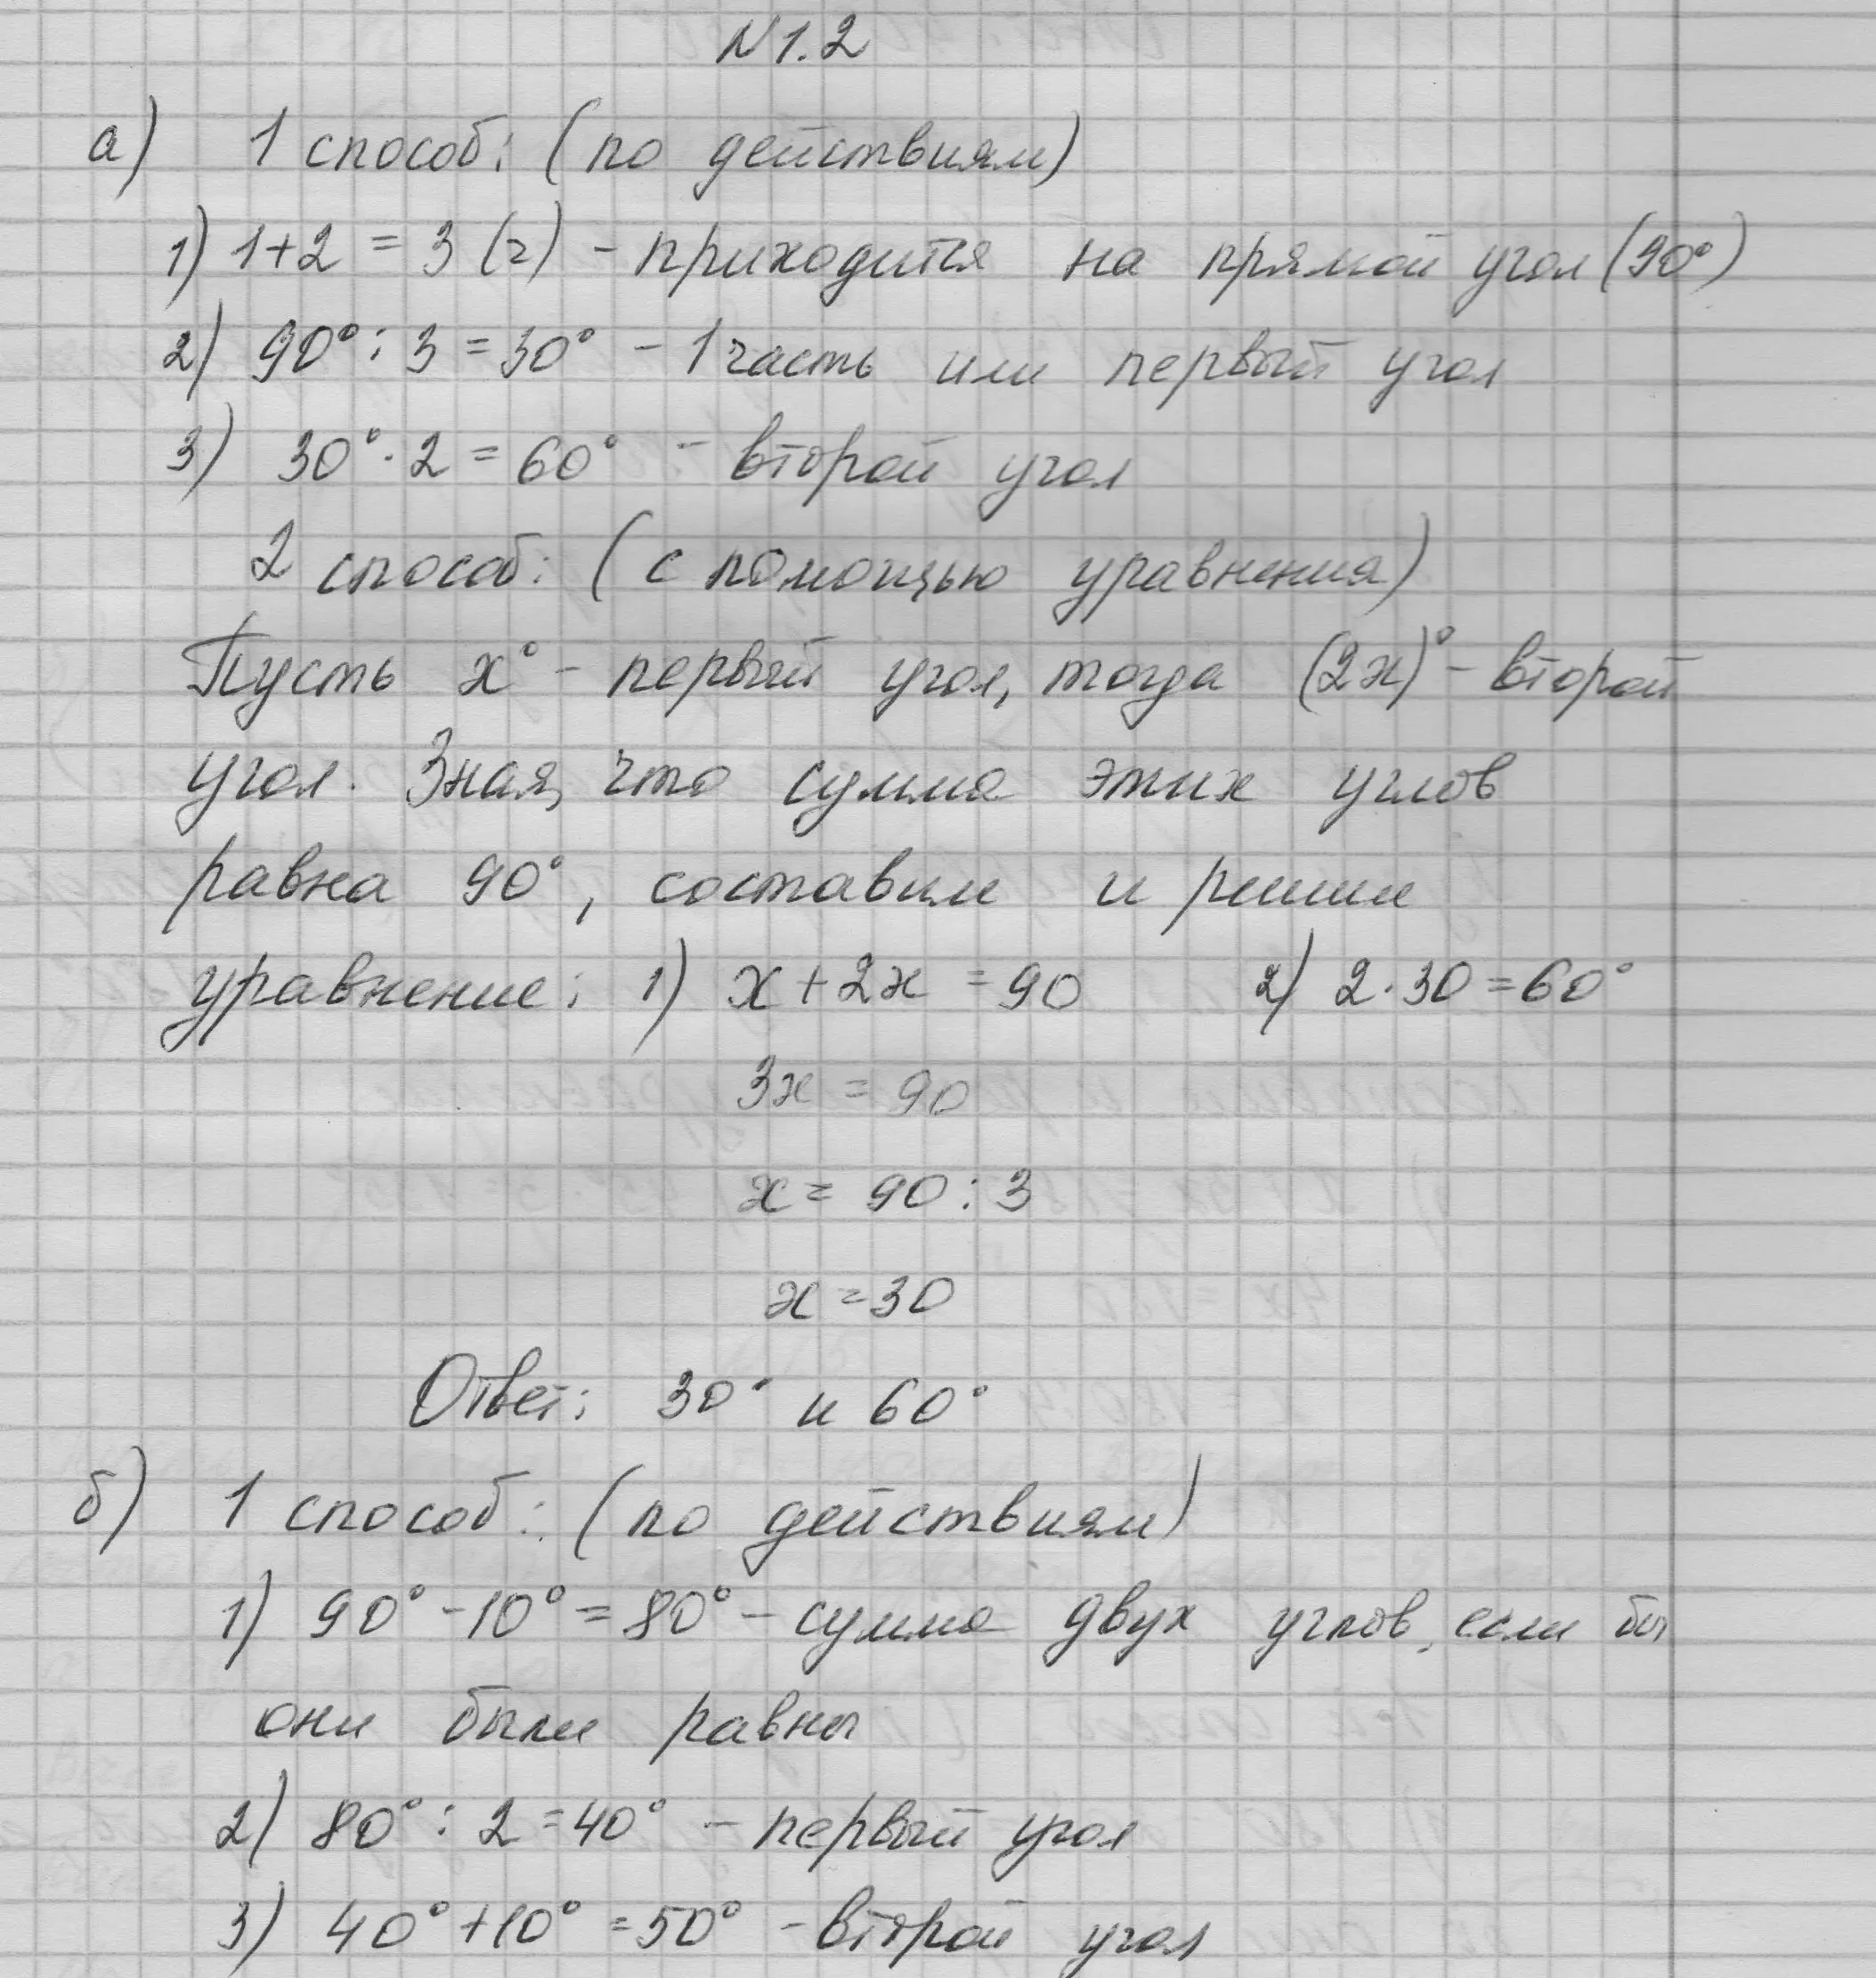 N 1.2
а) 1 способ: (по действиям)
1) 1+2 = 3 (ч) - приходится на прямой угол (90°)
2) 90° : 3 = 30° - 1 часть или первый угол
3) 30° · 2 = 60° - второй угол
2 способ: (с помощью уравнения)
Пусть x° - первый угол, тогда (2x)° - второй
угол. Зная, что сумма этих углов
равна 90°, составим и решим
уравнение: 1) x + 2x = 90 2) 2 · 30 = 60°
3x = 90
x = 90 : 3
x = 30
Ответ: 30° и 60°
б) 1 способ: (по действиям)
1) 90° - 10° = 80° - сумма двух углов, если бы
они были равны
2) 80° : 2 = 40° - первый угол
3) 40° + 10° = 50° - второй угол